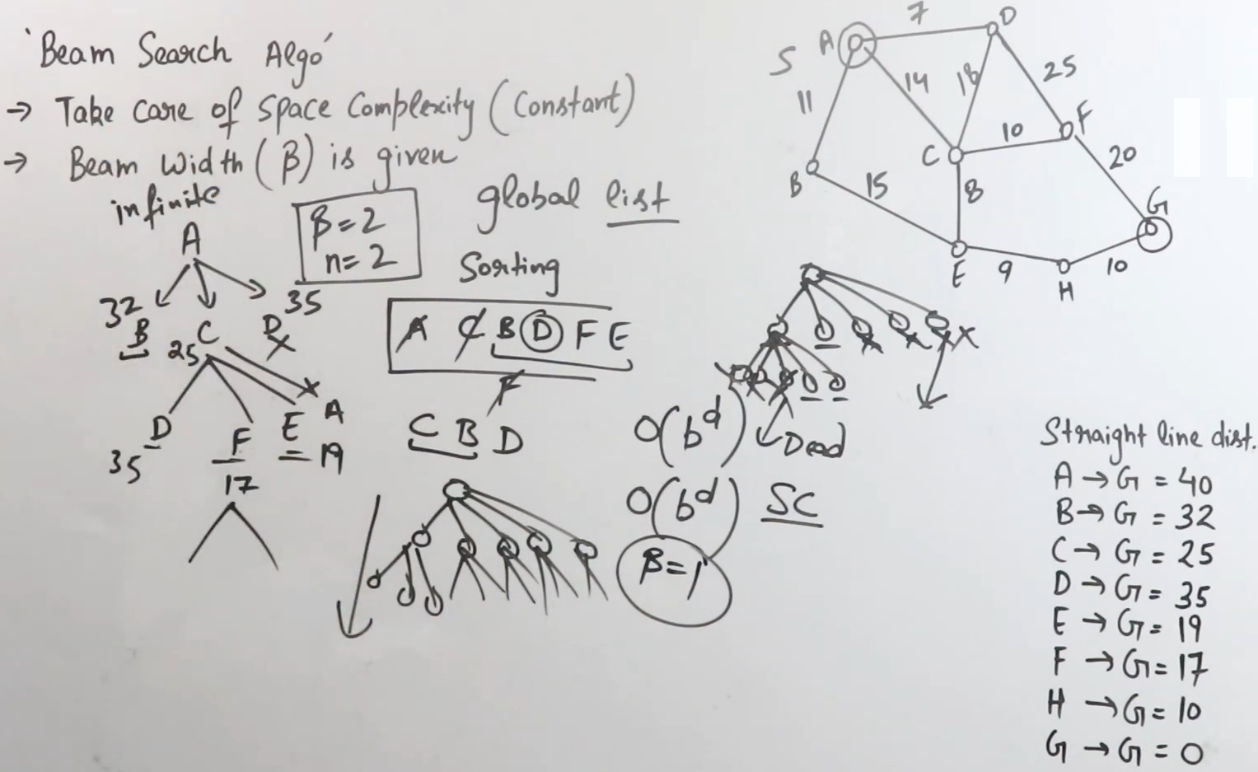 'Beam Search Algo'
→ Take care of Space Complexity (Constant)
→ Beam Width (β) is given
infinite
β=2
n=2
global list
Sorting
A
32
35
B
C
D
25
A C B D F E
F
C B D
D
F
E
A
35
17
19
O(b^d)
Dead
O(b^d) SC
β=1
S
A
7
D
11
14
18
25
C
10
F
B
15
8
20
G
E
9
H
10
Straight line dist.
A → G = 40
B → G = 32
C → G = 25
D → G = 35
E → G = 19
F → G = 17
H → G = 10
G → G = 0